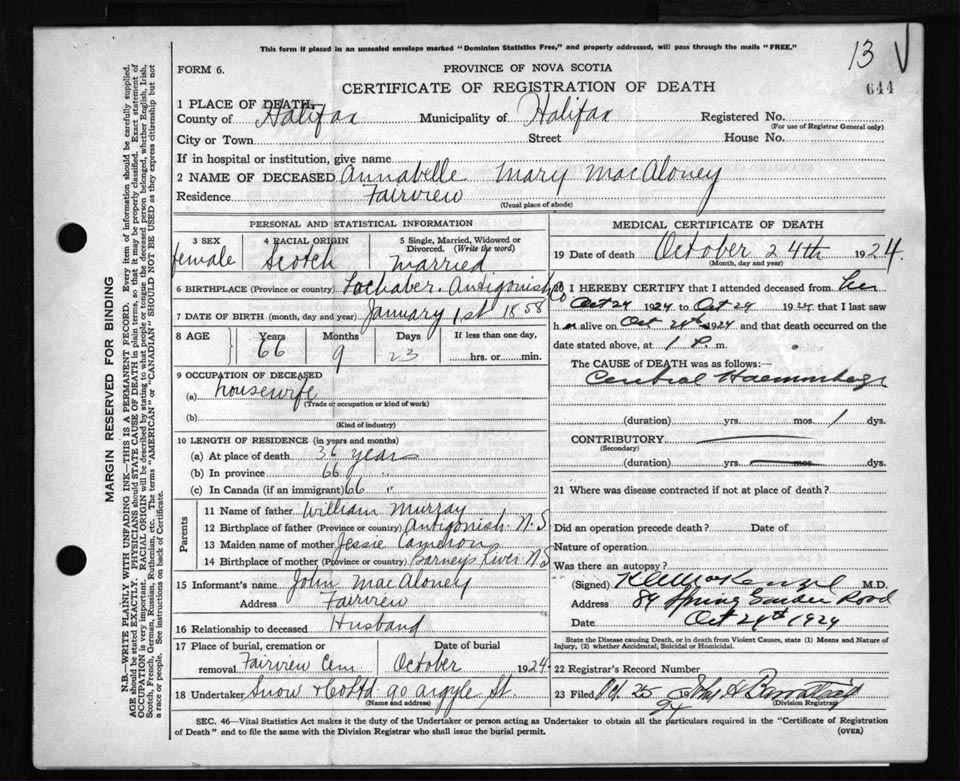 This form if placed in an unsealed envelope marked "Dominion Statistics Free," and properly addressed, will pass through the mails "FREE."
13 V
644
FORM 6.
PROVINCE OF NOVA SCOTIA
CERTIFICATE OF REGISTRATION OF DEATH
1 PLACE OF DEATH—
County of Halifax Municipality of Halifax Registered No.
(For use of Registrar General only)
City or Town Street House No.
If in hospital or institution, give name
2 NAME OF DECEASED Annabelle Mary MacAloney
Residence Fairview
(Usual place of abode)
PERSONAL AND STATISTICAL INFORMATION
3 SEX female
4 RACIAL ORIGIN Scotch
5 Single, Married, Widowed or Divorced. (Write the word) Married
6 BIRTHPLACE (Province or country) Lochaber. Antigonish Co
7 DATE OF BIRTH (month, day and year) January 1st 1858
8 AGE Years Months Days If less than one day,
66 9 23 hrs. or min.
9 OCCUPATION OF DECEASED
(a) housewife
(Trade or occupation or kind of work)
(b)
(Kind of industry)
10 LENGTH OF RESIDENCE (in years and months)
(a) At place of death 36 years
(b) In province 66 "
(c) In Canada (if an immigrant) 66 "
Parents
11 Name of father William Murray
12 Birthplace of father (Province or country) Antigonish. N.S
13 Maiden name of mother Jessie Cameron
14 Birthplace of mother (Province or country) Barney's River N.S
15 Informant's name John MacAloney
Address Fairview
16 Relationship to deceased Husband
17 Place of burial, cremation or removal Fairview Cem Date of burial October 1924
18 Undertaker Snow & Co Ltd 90 Argyle St.
(Name and address)
MEDICAL CERTIFICATE OF DEATH
19 Date of death October 24th 1924.
(Month, day and year)
20 I HEREBY CERTIFY that I attended deceased from her
Oct 24 1924 to Oct 24 1924 that I last saw
h er alive on Oct 24th 1924 and that death occurred on the
date stated above, at 1 P. m.
The CAUSE OF DEATH was as follows:—
(duration) yrs. mos. 1 dys.
CONTRIBUTORY
(Secondary)
(duration) yrs. mos. dys.
21 Where was disease contracted if not at place of death?
Did an operation precede death? Date of
Nature of operation
Was there an autopsy?
(Signed) M.D.
Address 84 Spring Garden Road
Date Oct 24th 1924
State the Disease causing Death, or in death from Violent Causes, state (1) Means and Nature of Injury, (2) whether Accidental, Suicidal or Homicidal.
22 Registrar's Record Number
23 Filed Oct. 25 19 24
(Division Registrar)
SEC. 46—Vital Statistics Act makes it the duty of the Undertaker or person acting as Undertaker to obtain all the particulars required in the "Certificate of Registration
of Death" and to file the same with the Division Registrar who shall issue the burial permit.
(OVER)
MARGIN RESERVED FOR BINDING
N.B.—WRITE PLAINLY WITH UNFADING INK—THIS IS A PERMANENT RECORD. Every item of information should be carefully supplied.
AGE should be stated EXACTLY. PHYSICIANS should STATE CAUSE OF DEATH in plain terms, so that it may be properly classified. Exact statement of
OCCUPATION is very important. RACIAL ORIGIN will be described by stating to what people or tongue the deceased person belonged, whether English, Irish,
Scotch, French, German, Russian, Ruthenian, etc. The terms "AMERICAN" or "CANADIAN" SHOULD NOT BE USED as they express citizenship but not
a race or people. See instructions on back of Certificate.